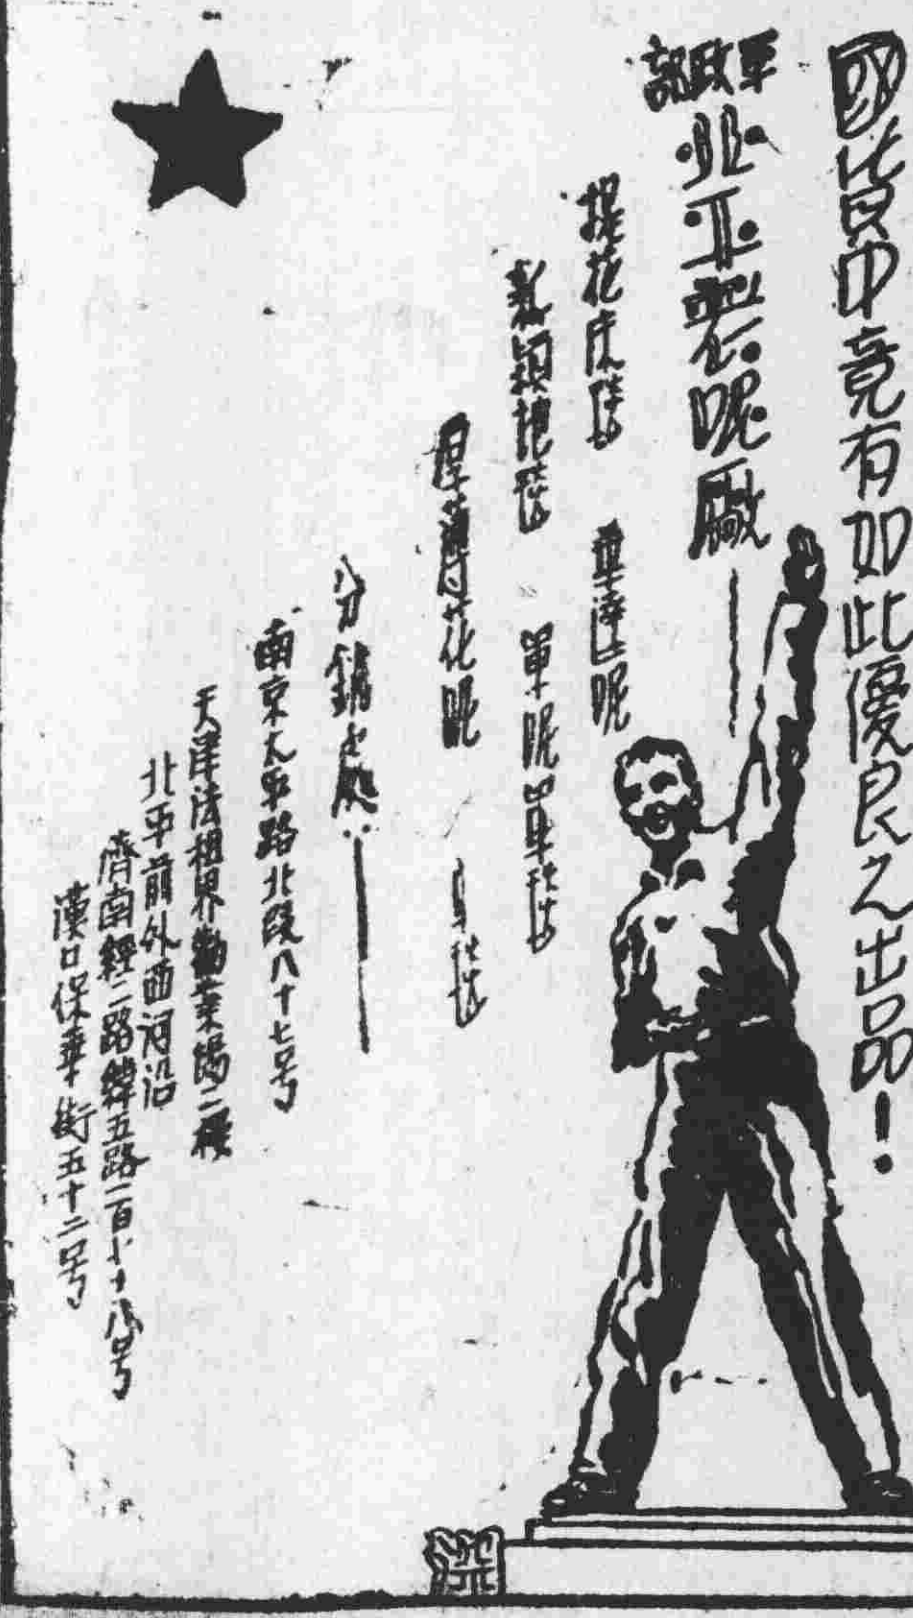 國貨中竟有如此優良之出品!
軍政部
北平製呢廠
提花床毯 華達呢
新穎提毯 單呢軍毯
厚薄花呢 車毯
分銷處:
南京太平路北段八十七号
天津法租界勸業場二樓
北平前外西河沿
濟南經二路緯五路二百六十八号
漢口保華街五十二号